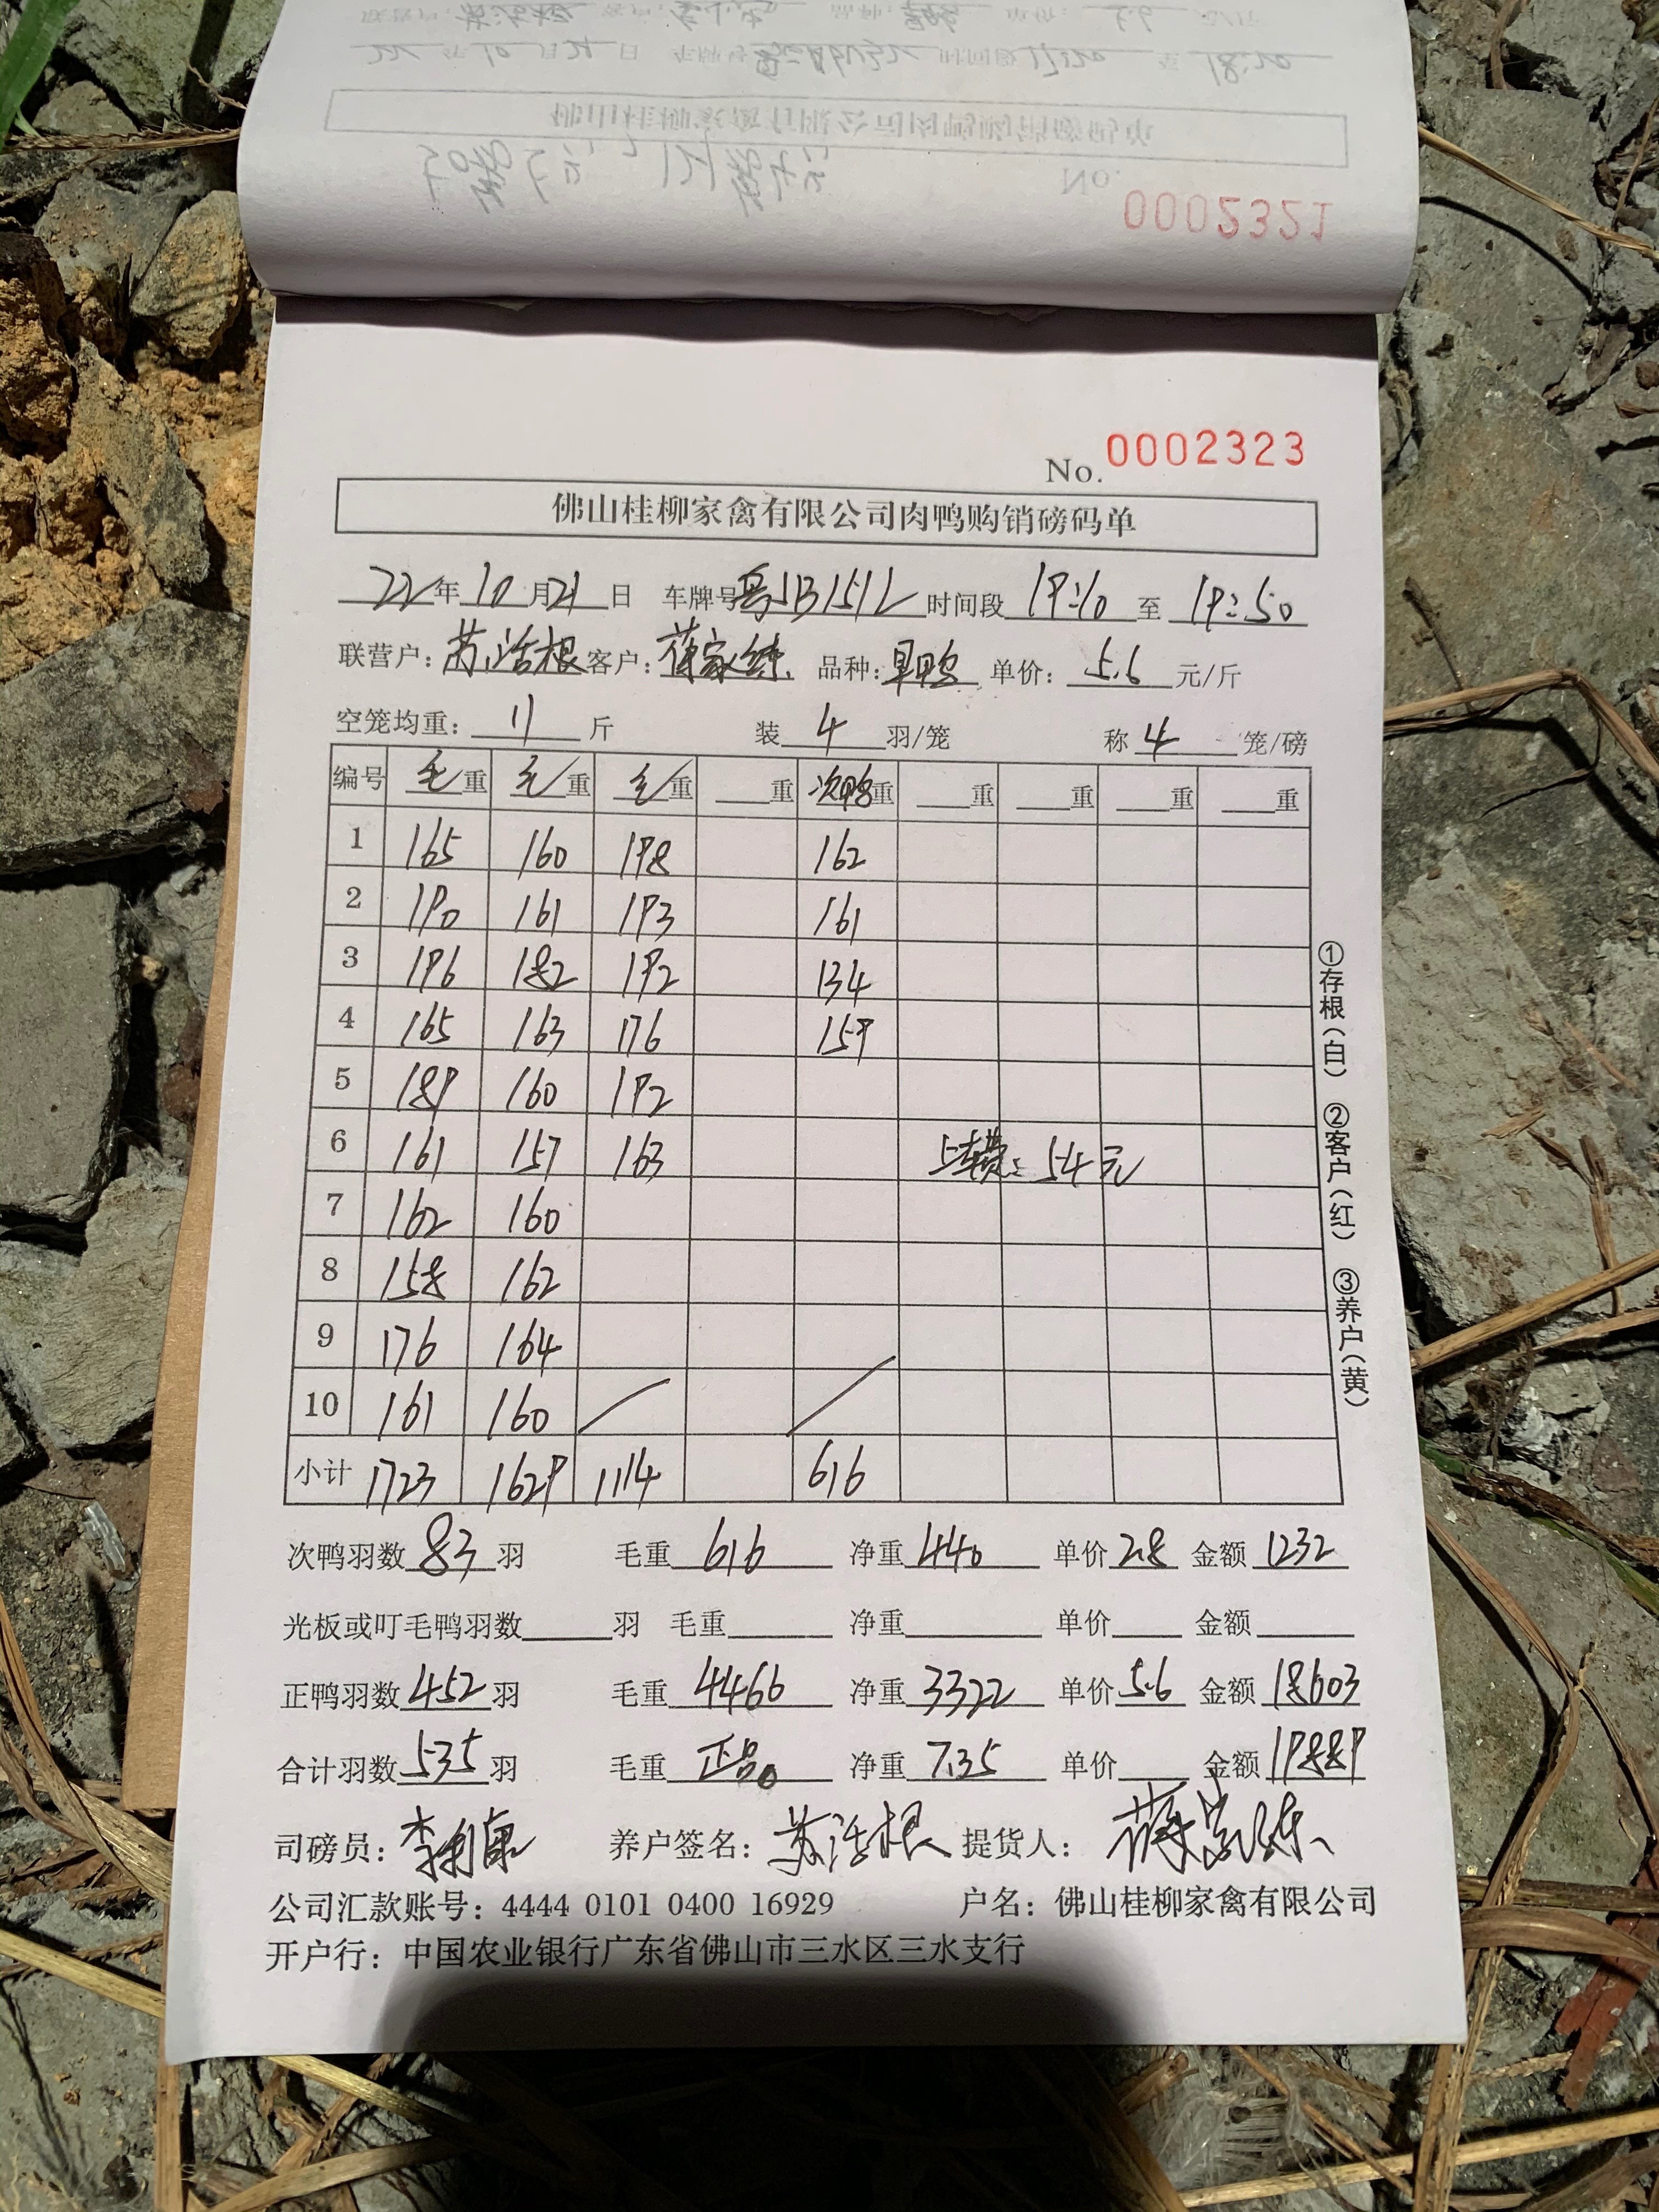 0002321
No. 0002323
佛山桂柳家禽有限公司肉鸭购销磅码单
22年10月21日 车牌号 粤JB1512 时间段 19:10 至 19:50
联营户: 苏活根 客户: 品种: 单价: 5.6 元/斤
空笼均重: 11 斤 装 4 羽/笼 称 4 笼/磅
编号 毛重 毛重 毛重 重 次鸭重 重 重 重 重
1 165 160 198 162
2 190 161 193 161
3 196 182 192 134
4 165 163 176 159
5 189 160 192
6 161 157 163 54元
7 162 160
8 158 162
9 176 164
10 161 160
小计 1723 1629 1114 616
次鸭羽数 83 羽 毛重 616 净重 440 单价 2.8 金额 1232
光板或叮毛鸭羽数 羽 毛重 净重 单价 金额
正鸭羽数 452 羽 毛重 4466 净重 3322 单价 5.6 金额 18603
合计羽数 535 羽 毛重 正品 净重 7.35 单价 金额 19889
司磅员: 养户签名: 苏活根 提货人:
公司汇款账号: 4444 0101 0400 16929 户名: 佛山桂柳家禽有限公司
开户行: 中国农业银行广东省佛山市三水区三水支行
①存根(白) ②客户(红) ③养户(黄)